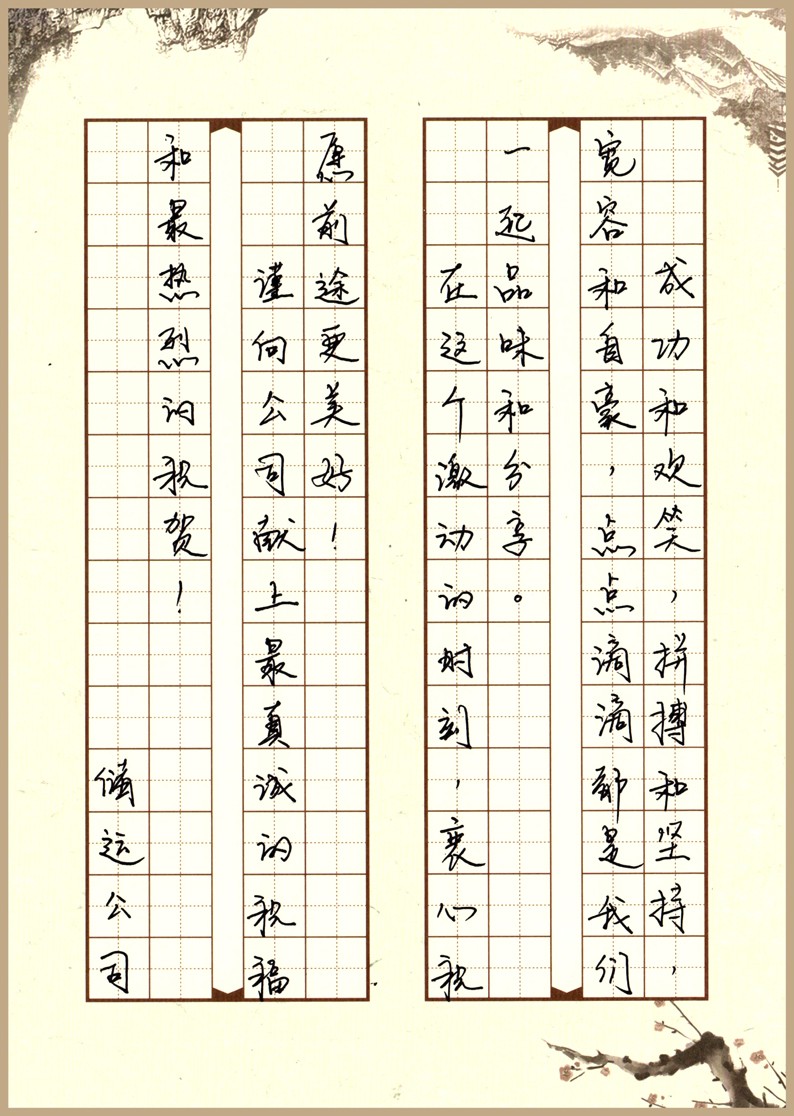 成功和欢笑，拼搏和坚持，
宽容和自豪，点点滴滴都是我们
一起品味和分享。
在这个激动的时刻，衷心祝
愿前途更美好！
谨向公司献上最真诚的祝福
和最热烈的祝贺！
储运公司